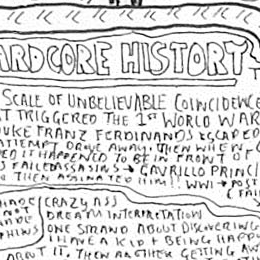 ARDCORE HISTORY
SCALE OF UNBELIEVABLE COINCIDENCE
T TRIGGERED THE 1ST WORLD WAR
UKE FRANZ FERDINANDS ESCAPED
ATTEMPT DROVE AWAY. THEN WHEN
ED IT HAPPENED TO BE IN FRONT OF
FAILED ASSASSINS → GAVRILLO PRINCI
THEN ASSINATED HIM!! WWI → POST
CRAZY ASS
NOT DREAM INTERPRETATION
ONE STRAND ABOUT DISCOVERING
I HAVE A KID & BEING HAPP
ABOUT IT. THEN ANOTHER GETTING AW